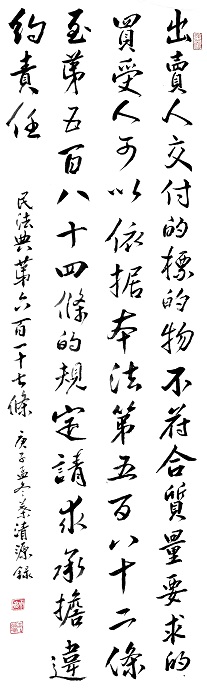 出賣人交付的標的物不符合質量要求的
買受人可以依据本法第五百八十二條
至第五百八十四條的規定請求承擔違
約責任
民法典第六百一十七條 庚子孟冬清源錄